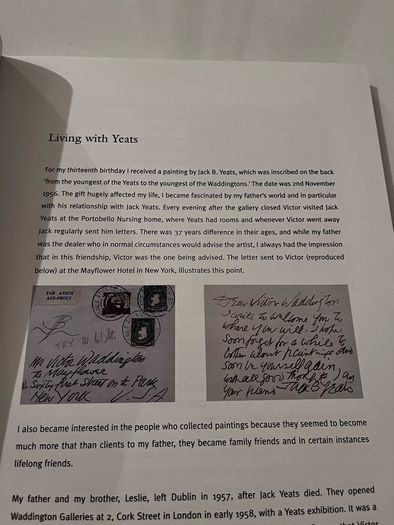 Living with Yeats
For my thirteenth birthday I received a painting by Jack B. Yeats, which was inscribed on the back
'from the youngest of the Yeats to the youngest of the Waddingtons.' The date was 2nd November
1956. The gift hugely affected my life, I became fascinated by my father's world and in particular
with his relationship with Jack Yeats. Every evening after the gallery closed Victor visited Jack
Yeats at the Portobello Nursing home, where Yeats had rooms and whenever Victor went away
Jack regularly sent him letters. There was 37 years difference in their ages, and while my father
was the dealer who in normal circumstances would advise the artist, I always had the impression
that in this friendship, Victor was the one being advised. The letter sent to Victor (reproduced
below) at the Mayflower Hotel in New York, illustrates this point.
PAR AVION
AER-PHOST
TRY W. 61 St.
Mr Victor Waddington
Mayflower
Street on the Park
New York U.S.A
Dear Victor Waddington
I write to welcome you to
where you will. I hope
soon forget for a while to
bother about paintings and
soon be yourself again
with all good thoughts I am
your friend Jack B Yeats
I also became interested in the people who collected paintings because they seemed to become
much more that than clients to my father, they became family friends and in certain instances
lifelong friends.
My father and my brother, Leslie, left Dublin in 1957, after Jack Yeats died. They opened
Waddington Galleries at 2, Cork Street in London in early 1958, with a Yeats exhibition. It was a
that Victor